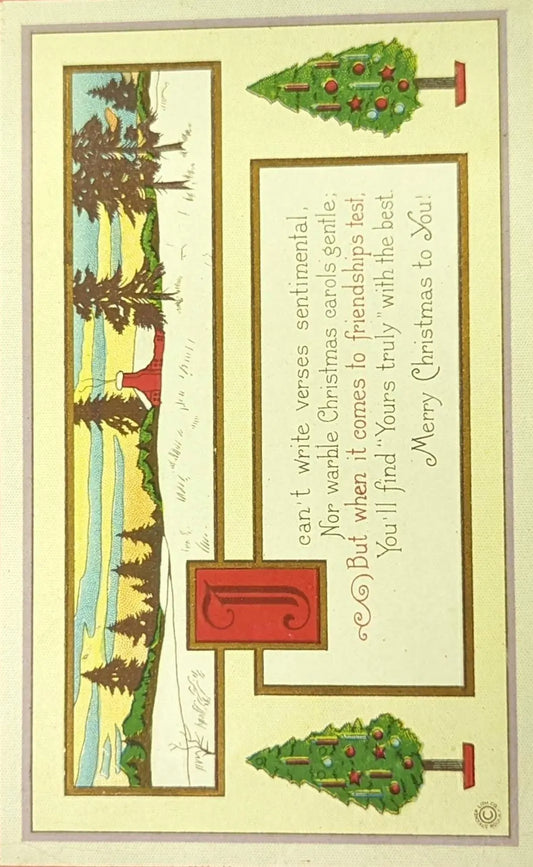 I
can't write verses sentimental,
Nor warble Christmas carols gentle;
But when it comes to friendships test,
You'll find "Yours truly" with the best.
Merry Christmas to You!
©